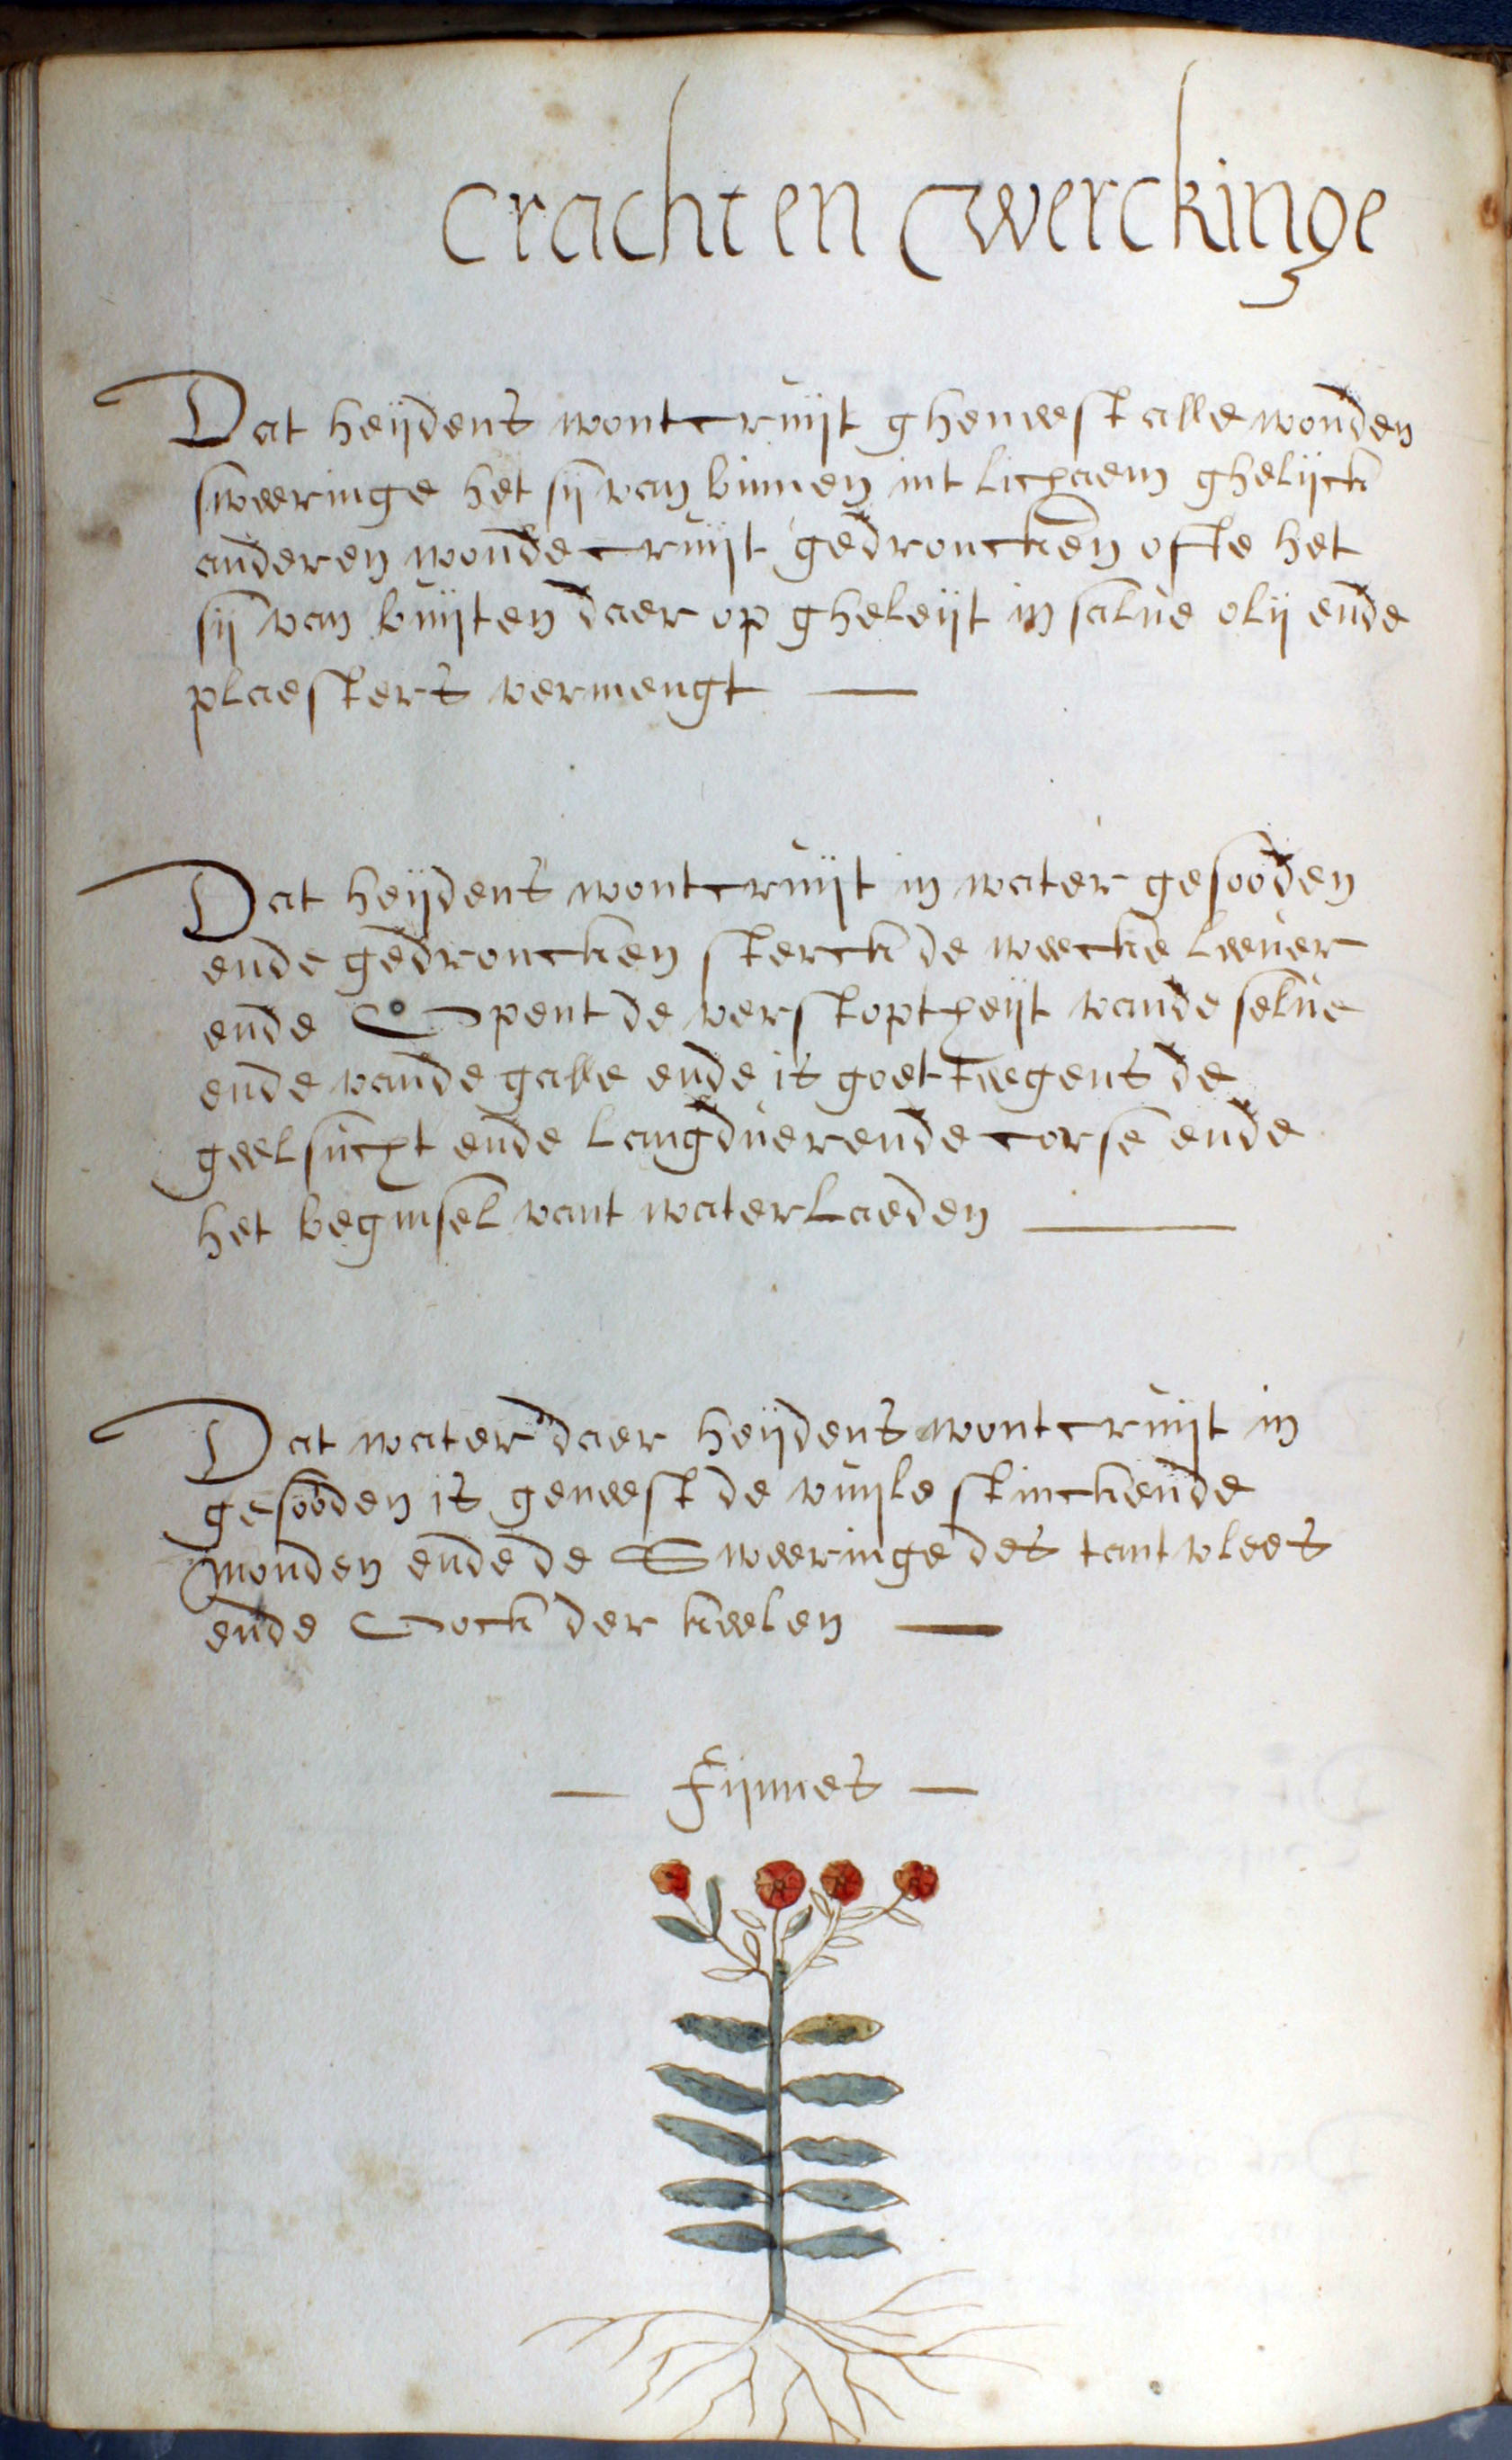 Cracht en werckinge
Dat heijdens wontcruijt gheneest alle wonden
sweeringe het sij van binnen int lichaem ghelijck
anderen wondecruijt gedroncken ofte het
sij van buijten daer op gheleijt in salue olij ende
plaesters vermengt
Dat heijdens wontcruijt in water gesooden
ende gedroncken sterck de weecke leeuer
ende Opent de verstoptheijt vande selue
ende vande galle ende is goet teegens de
geelsucht ende langduerende corse ende
het beginsel vant waterlaeden
Dat water daer heijdens wontcruijt in
gesooden is geneest de vuijle stinckende
monden ende de Sweeringe des tantvlees
ende Oock der keelen
Fijnnes